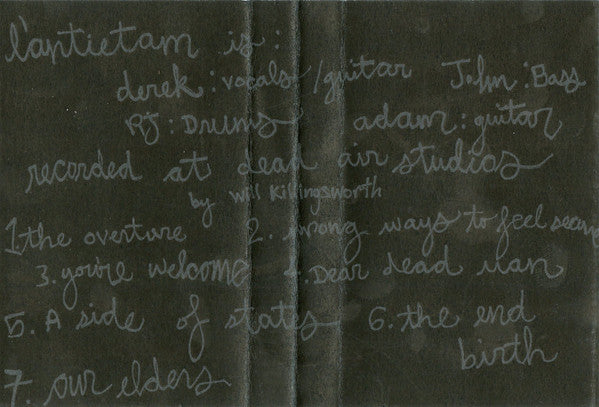 l'antietam is:
derek: vocals/guitar John: Bass
RJ: Drums adam: guitar
recorded at dead air studios
by Will Killingsworth
1 the overture 2. wrong ways to feel secure
3. you're welcome 4. Dear dead man
5. A side of states 6. the end
birth
7. our elders